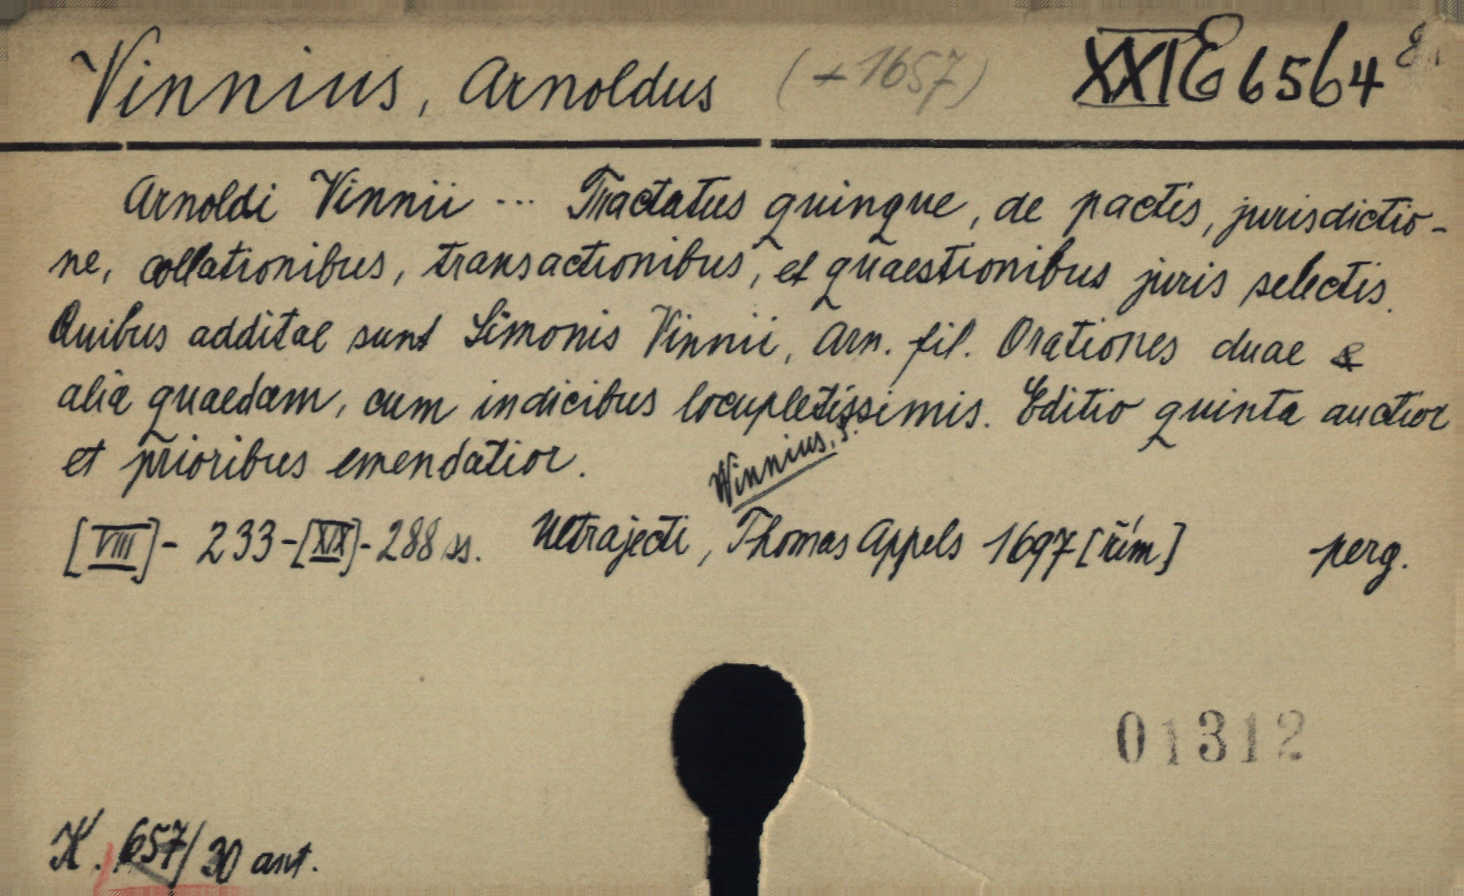 Vinnius, Arnoldus (+1657) XXI E 6564
Arnoldi Vinnii ... Tractatus quinque, de pactis, jurisdictio-
ne, collationibus, transactionibus, et quaestionibus juris selectis.
Quibus additae sunt Simonis Vinnii, Arn. fil. Orationes duae &
alia quaedam, cum indicibus locupletissimis. Editio quinta auctior
et prioribus emendatior.
Vinnius, S.
[VIII]- 233-[XIX]-288 ss. Ultrajecti, Thomas Appels 1697 [řím] perg.
01312
K. 657/30 ant.